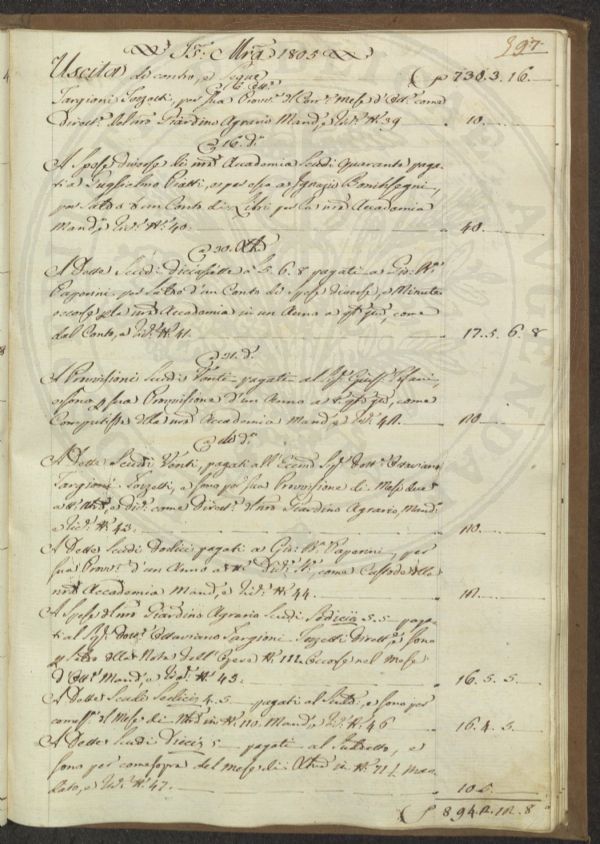 J5: Mra 1805
397
Uscita di contro, e segue (p 7383.16.
a 16 Ott.
Targioni Tozzetti, per sua Provv. del Corr. Mese d'Ott. come
Dirett. del nro Giardino Agrario Mand, e Ric. N. 39 " 10.
a 16. d.
A Spese diverse di nra Accademia Scudi quaranta paga-
ti a Guglielmo Piatti, e per esso a Ignazio
per Saldo d'un Conto di Libri per la nra Accademia
Mand, e Ric. N. 40. " 40
a 30.
A Dette Scudi Diciassette e L. 5. 6. 8 pagati a Gio. Bta
Paperini per Saldo d'un Conto di spese diverse, e Minute
occorse p la nra Accademia in un Anno a come
dal Conto, e Ric. N. 41. " 17.5.6.8
a 31. d.
A Provvisioni Scudi Venti pagati al Sig. Gius.
e sono p sua Provvisione d'un Anno a come
Computista della nra Accademia Mand, e Ric. N. 42. " 20
a do d.
A Dette Scudi Venti, pagati all'Eccmo Sig. Dott. Ottaviano
Targioni Tozzetti, e sono per sua Provvisione di Mesi due
e come Dirett. del nro Giardino Agrario, Mand.
e Ric. N. 43. " 20.
A Dette Scudi Dodici pagati a Gio. Bta Paperini, per
sua Provv. d'un Anno a come Custode della
nra Accademia Mand, e Ric. N. 44. " 12.
A Spese del nro Giardino Agrario Scudi Sedici 5.5 paga-
ti al Sig. Dott. Ottaviano Targioni Tozzetti Dirett., e sono
p Saldo della Nota dell'Opere N. 111 occorse nel Mese
d'Ott. Mand, e Ric. N. 45. " 16.5.5.
A Dette Scudi Sedici 4.5 pagati al Sudd., e sono per
il Mese di in N. 110 Mand, e Ric. N. 46 " 16.4.5.
A Dette Scudi Dieci 5 pagati al Suddetto, e
sono per come sopra del Mese di in N. 71½ Man-
dato, e Ric. N. 47. " 10.5
(p 894.2.12.8